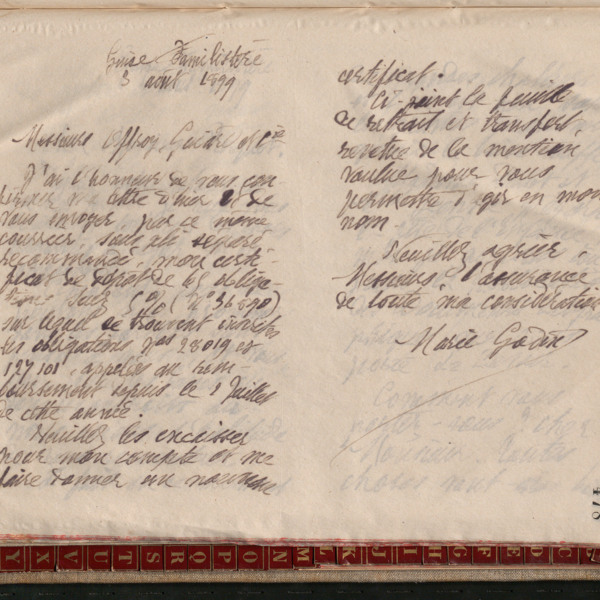 Guise Familistère
3 août 1899
Messieurs Offroy, Guiard et Cie
J'ai l'honneur de vous con-
firmer ma lettre d'hier et de
vous envoyer, par ce même
courrier, sous pli séparé
recommandé, mon certi-
ficat de dépôt de 65 obliga-
tions Suez 5% (N° 36890)
sur lequel se trouvent inscrites
les obligations nos 28019 et
127101, appelées au rem-
boursement depuis le 1 Juillet
de cette année.
Veuillez les encaisser
pour mon compte et me
faire donner un nouveau
certificat.
Ci-joint la feuille
de retrait et transfert,
revêtue de la mention
voulue pour vous
permettre d'agir en mon
nom.
Veuillez agréer,
Messieurs, l'assurance
de toute ma considération
Marie Godin
478
Y X V U T S R Q P O N M L K J I H G F E D C